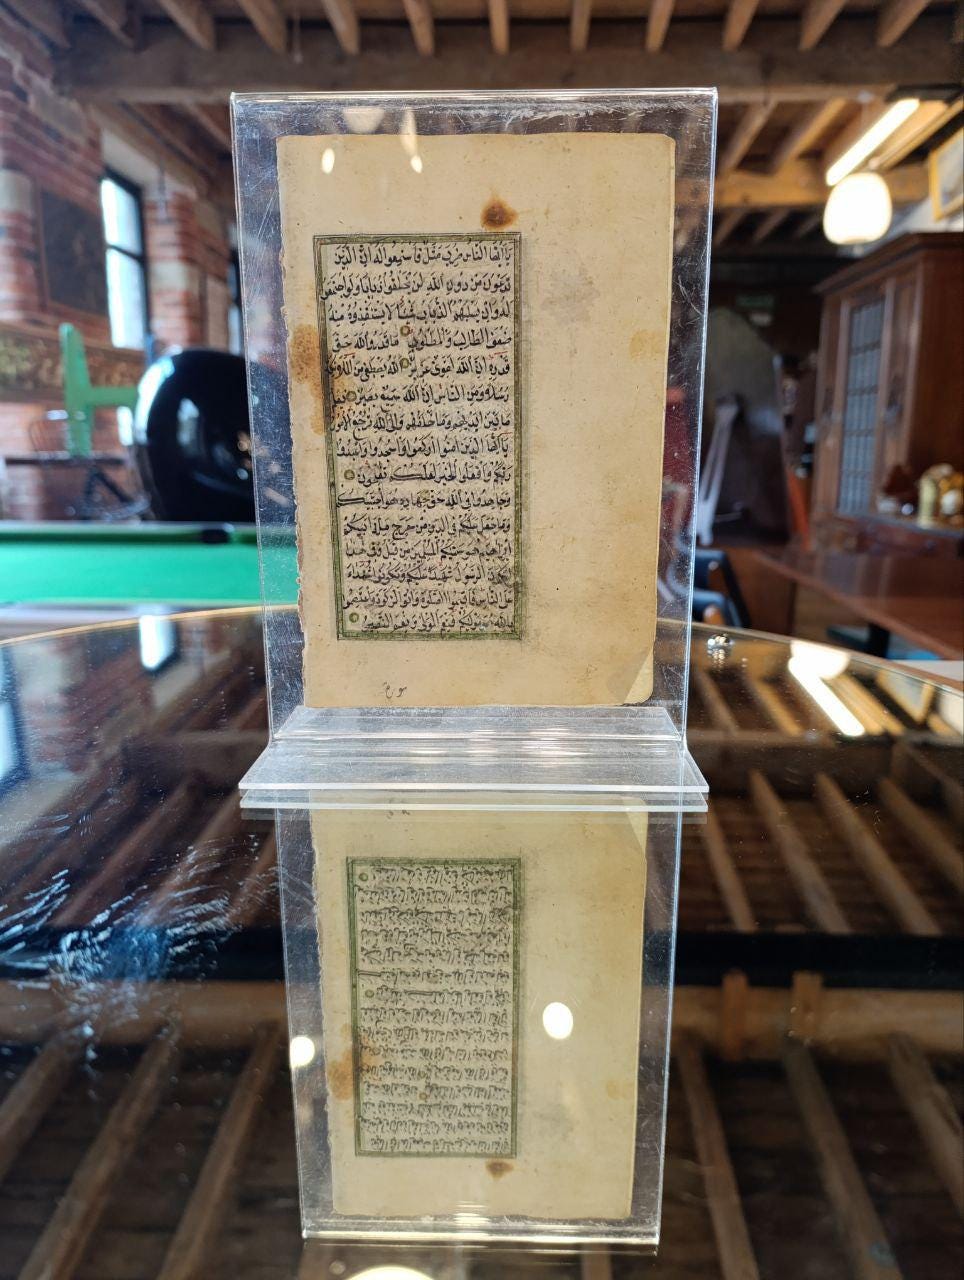 يَا أَيُّهَا النَّاسُ ضُرِبَ مَثَلٌ فَاسْتَمِعُوا لَهُ إِنَّ الَّذِينَ
تَدْعُونَ مِنْ دُونِ اللَّهِ لَنْ يَخْلُقُوا ذُبَابًا وَلَوِ اجْتَمَعُوا
لَهُ وَإِنْ يَسْلُبْهُمُ الذُّبَابُ شَيْئًا لَا يَسْتَنْقِذُوهُ مِنْهُ
ضَعُفَ الطَّالِبُ وَالْمَطْلُوبُ مَا قَدَرُوا اللَّهَ حَقَّ
قَدْرِهِ إِنَّ اللَّهَ لَقَوِيٌّ عَزِيزٌ اللَّهُ يَصْطَفِي مِنَ الْمَلَائِكَةِ
رُسُلًا وَمِنَ النَّاسِ إِنَّ اللَّهَ سَمِيعٌ بَصِيرٌ يَعْلَمُ
مَا بَيْنَ أَيْدِيهِمْ وَمَا خَلْفَهُمْ وَإِلَى اللَّهِ تُرْجَعُ الْأُمُورُ
يَا أَيُّهَا الَّذِينَ آمَنُوا ارْكَعُوا وَاسْجُدُوا وَاعْبُدُوا
رَبَّكُمْ وَافْعَلُوا الْخَيْرَ لَعَلَّكُمْ تُفْلِحُونَ
وَجَاهِدُوا فِي اللَّهِ حَقَّ جِهَادِهِ هُوَ اجْتَبَاكُمْ
وَمَا جَعَلَ عَلَيْكُمْ فِي الدِّينِ مِنْ حَرَجٍ مِلَّةَ أَبِيكُمْ
إِبْرَاهِيمَ هُوَ سَمَّاكُمُ الْمُسْلِمِينَ مِنْ قَبْلُ وَفِي هَذَا
لِيَكُونَ الرَّسُولُ شَهِيدًا عَلَيْكُمْ وَتَكُونُوا شُهَدَاءَ
عَلَى النَّاسِ فَأَقِيمُوا الصَّلَاةَ وَآتُوا الزَّكَاةَ وَاعْتَصِمُوا
بِاللَّهِ هُوَ مَوْلَاكُمْ فَنِعْمَ الْمَوْلَى وَنِعْمَ النَّصِيرُ